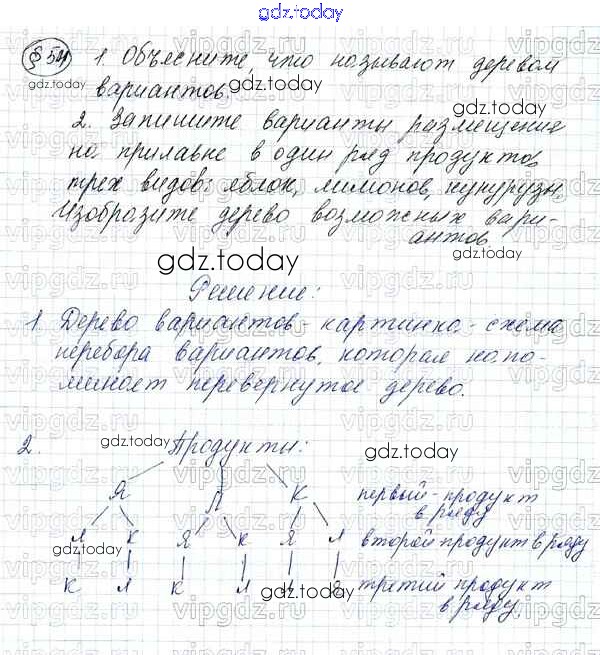 gdz.today
§ 54 1. Объясните, что называют деревом
gdz.today
вариантов.
gdz.today
2. Запишите варианты размещения
на прилавке в один ряд продуктов
трех видов: яблок, лимонов, кукурузы.
Изобразите дерево возможных вари-
антов.
gdz.today
Решение:
1 Дерево вариантов - картинка - схема
перебора вариантов, которая напо-
минает перевернутое дерево.
2. gdz.today Продукты: gdz.today
Я Л К первый - продукт
в ряду
Л К Я К Я Л второй продукт в ряду
gdz.today
К Л К Я третий продукт
в ряду
gdz.today gdz.today